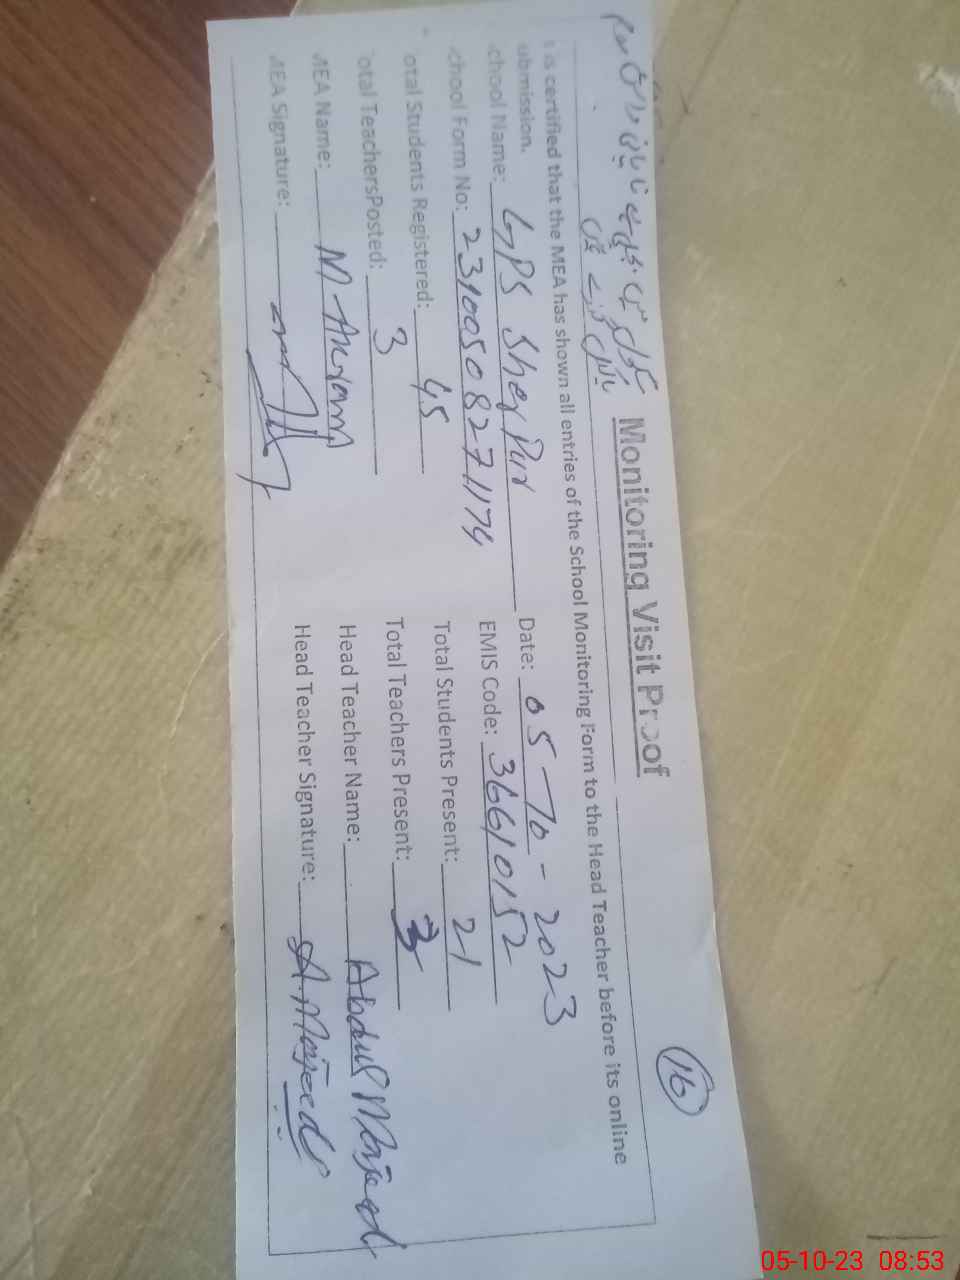 16
Monitoring Visit Proof
t is certified that the MEA has shown all entries of the School Monitoring Form to the Head Teacher before its online
ubmission.
chool Name: GPS Sher Pur Date: 05-10-2023
chool Form No: EMIS Code: 36610152
otal Students Registered: 45 Total Students Present: 21
otal TeachersPosted: 3 Total Teachers Present: 3
MEA Name: M Akram Head Teacher Name: Abdul Majeed
MEA Signature: Head Teacher Signature: A. Majeed
05-10-23 08:53